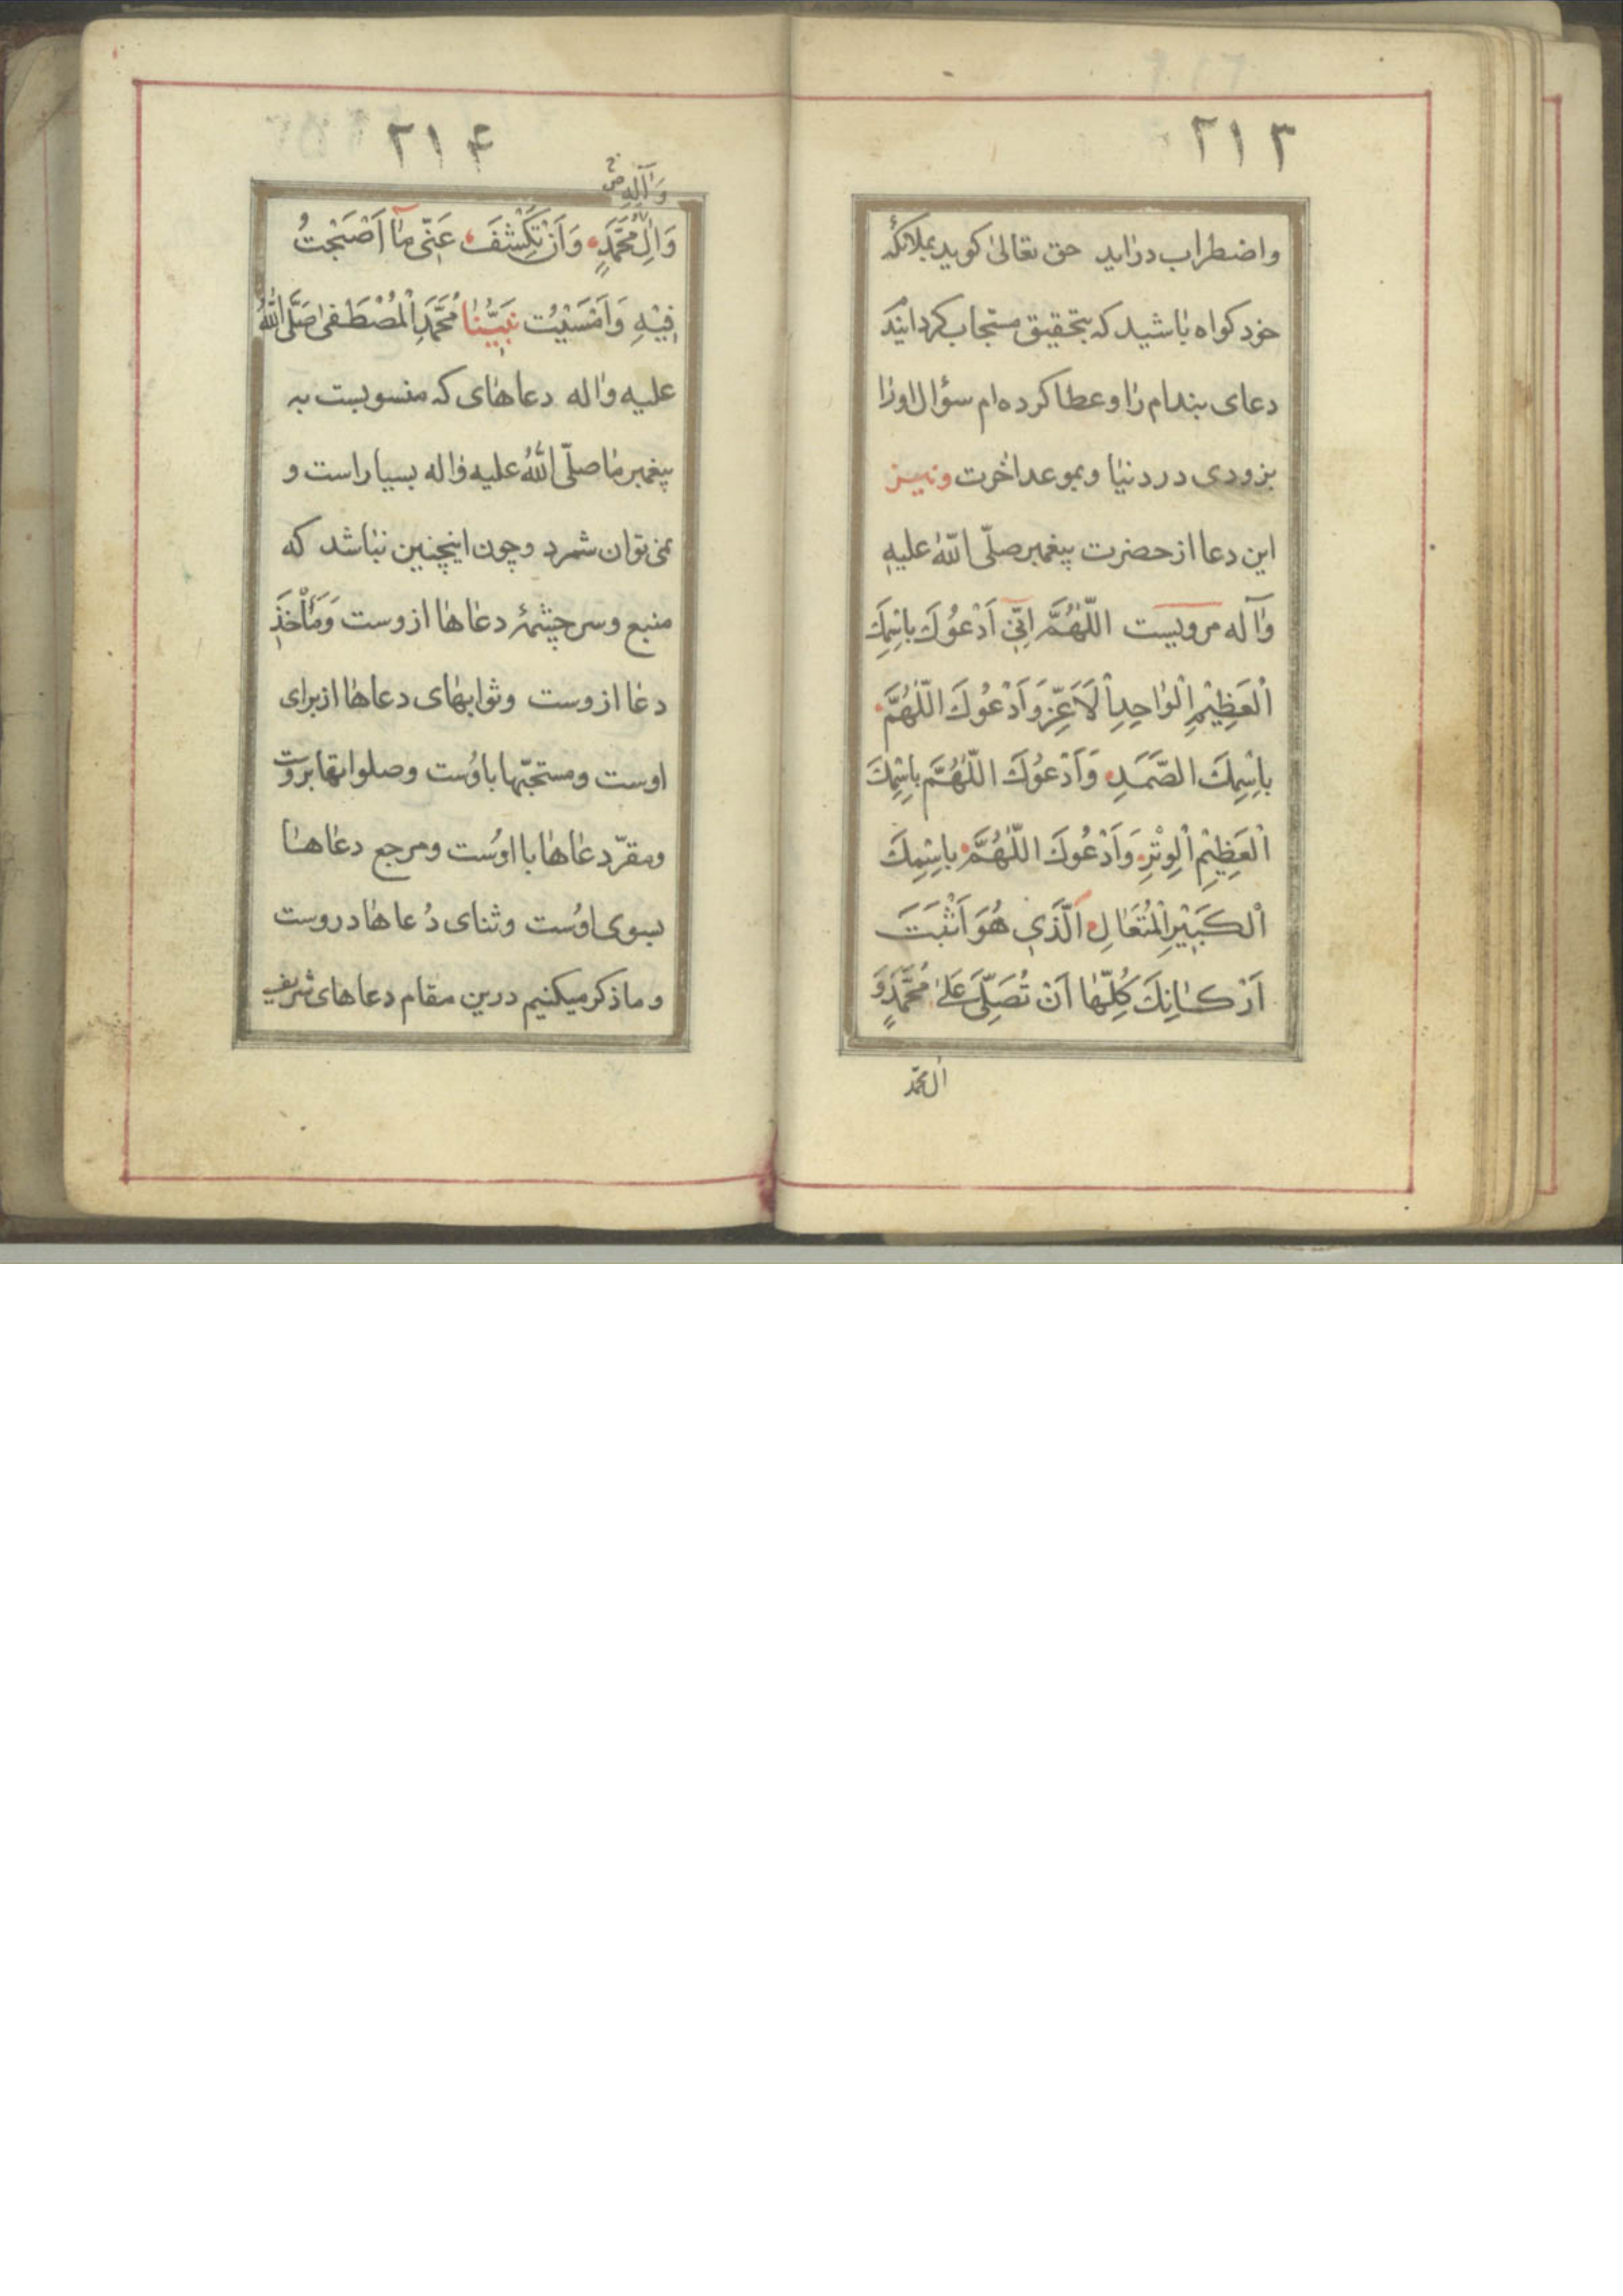 ۲۱۳
واضطراب درايد حق تعالى كويد بملائكهٔ
خود كواه باشيد كه بتحقيق مستجاب كردانيدم
دعاى بنده‌ام را و عطا كرده‌ام سؤال اورا
بزودى در دنيا و بموعد اخرت ونيز
اين دعا از حضرت پيغمبر صلّى اللّٰه عليه
وآله مرويست اللّٰهُمَّ اِنّي اَدْعُوكَ بِاسْمِكَ
اَلْعَظِيْمِ اِلْوٰاحِدِ اْلاَعَزِّ وَاَدْعُوكَ اللّٰهُمَّ
بِاسْمِكَ الصَّمَدِ وَاَدْعُوكَ اللّٰهُمَّ بِاسْمِكَ
اْلعَظِيْمِ اْلوِتْرِ وَاَدْعُوكَ اللّٰهُمَّ بِاسْمِكَ
اْلكَبِيْرِ اْلمُتَعٰالِ اَلَّذِي هُوَ اَثْبَتَ
اَرْكٰانِكَ كُلِّهٰا اَنْ تُصَلِّيَ عَلىٰ مُحَمَّدٍ وَ
اٰل محمّد
۲۱۴
وَآلِهِ
وَاٰلِ مُحَمَّدٍ وَاَنْ تَكْشِفَ عَنّي مٰا اَصْبَحْتُ
فِيْهِ وَاَمْسَيْتُ نَبِيُّنٰا مُحَمَّدِ اْلمُصْطَفىٰ صَلَّى اللّٰهُ
عليه وآله دعاهاى كه منسوبست به
پيغمبر ما صلّى اللّٰهُ عليه وآله بسيار است و
نمى توان شمرد وچون اينچنين نباشد كه
منبع وسرچشمهٔ دعاها ازوست وَمَأْخَذِ
دعا ازوست وثوابهاى دعاها از براى
اوست ومستحبّها با اوست وصلواتها بروست
ومقرّ دعاها با اوست ومرجع دعاها
بسوى اوست وثناى دعاها دروست
و ما ذكر ميكنيم درين مقام دعاهاى شريف